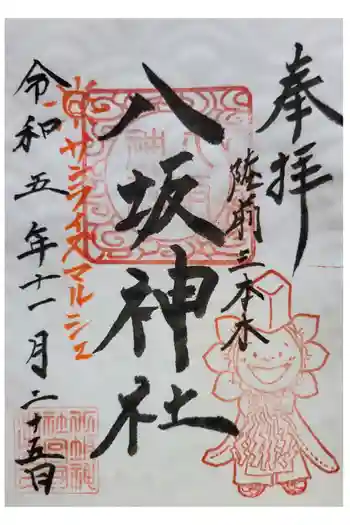 奉拝
陸前三本木
八坂神社
サンライズマルシェ
令和五年十一月二十五日